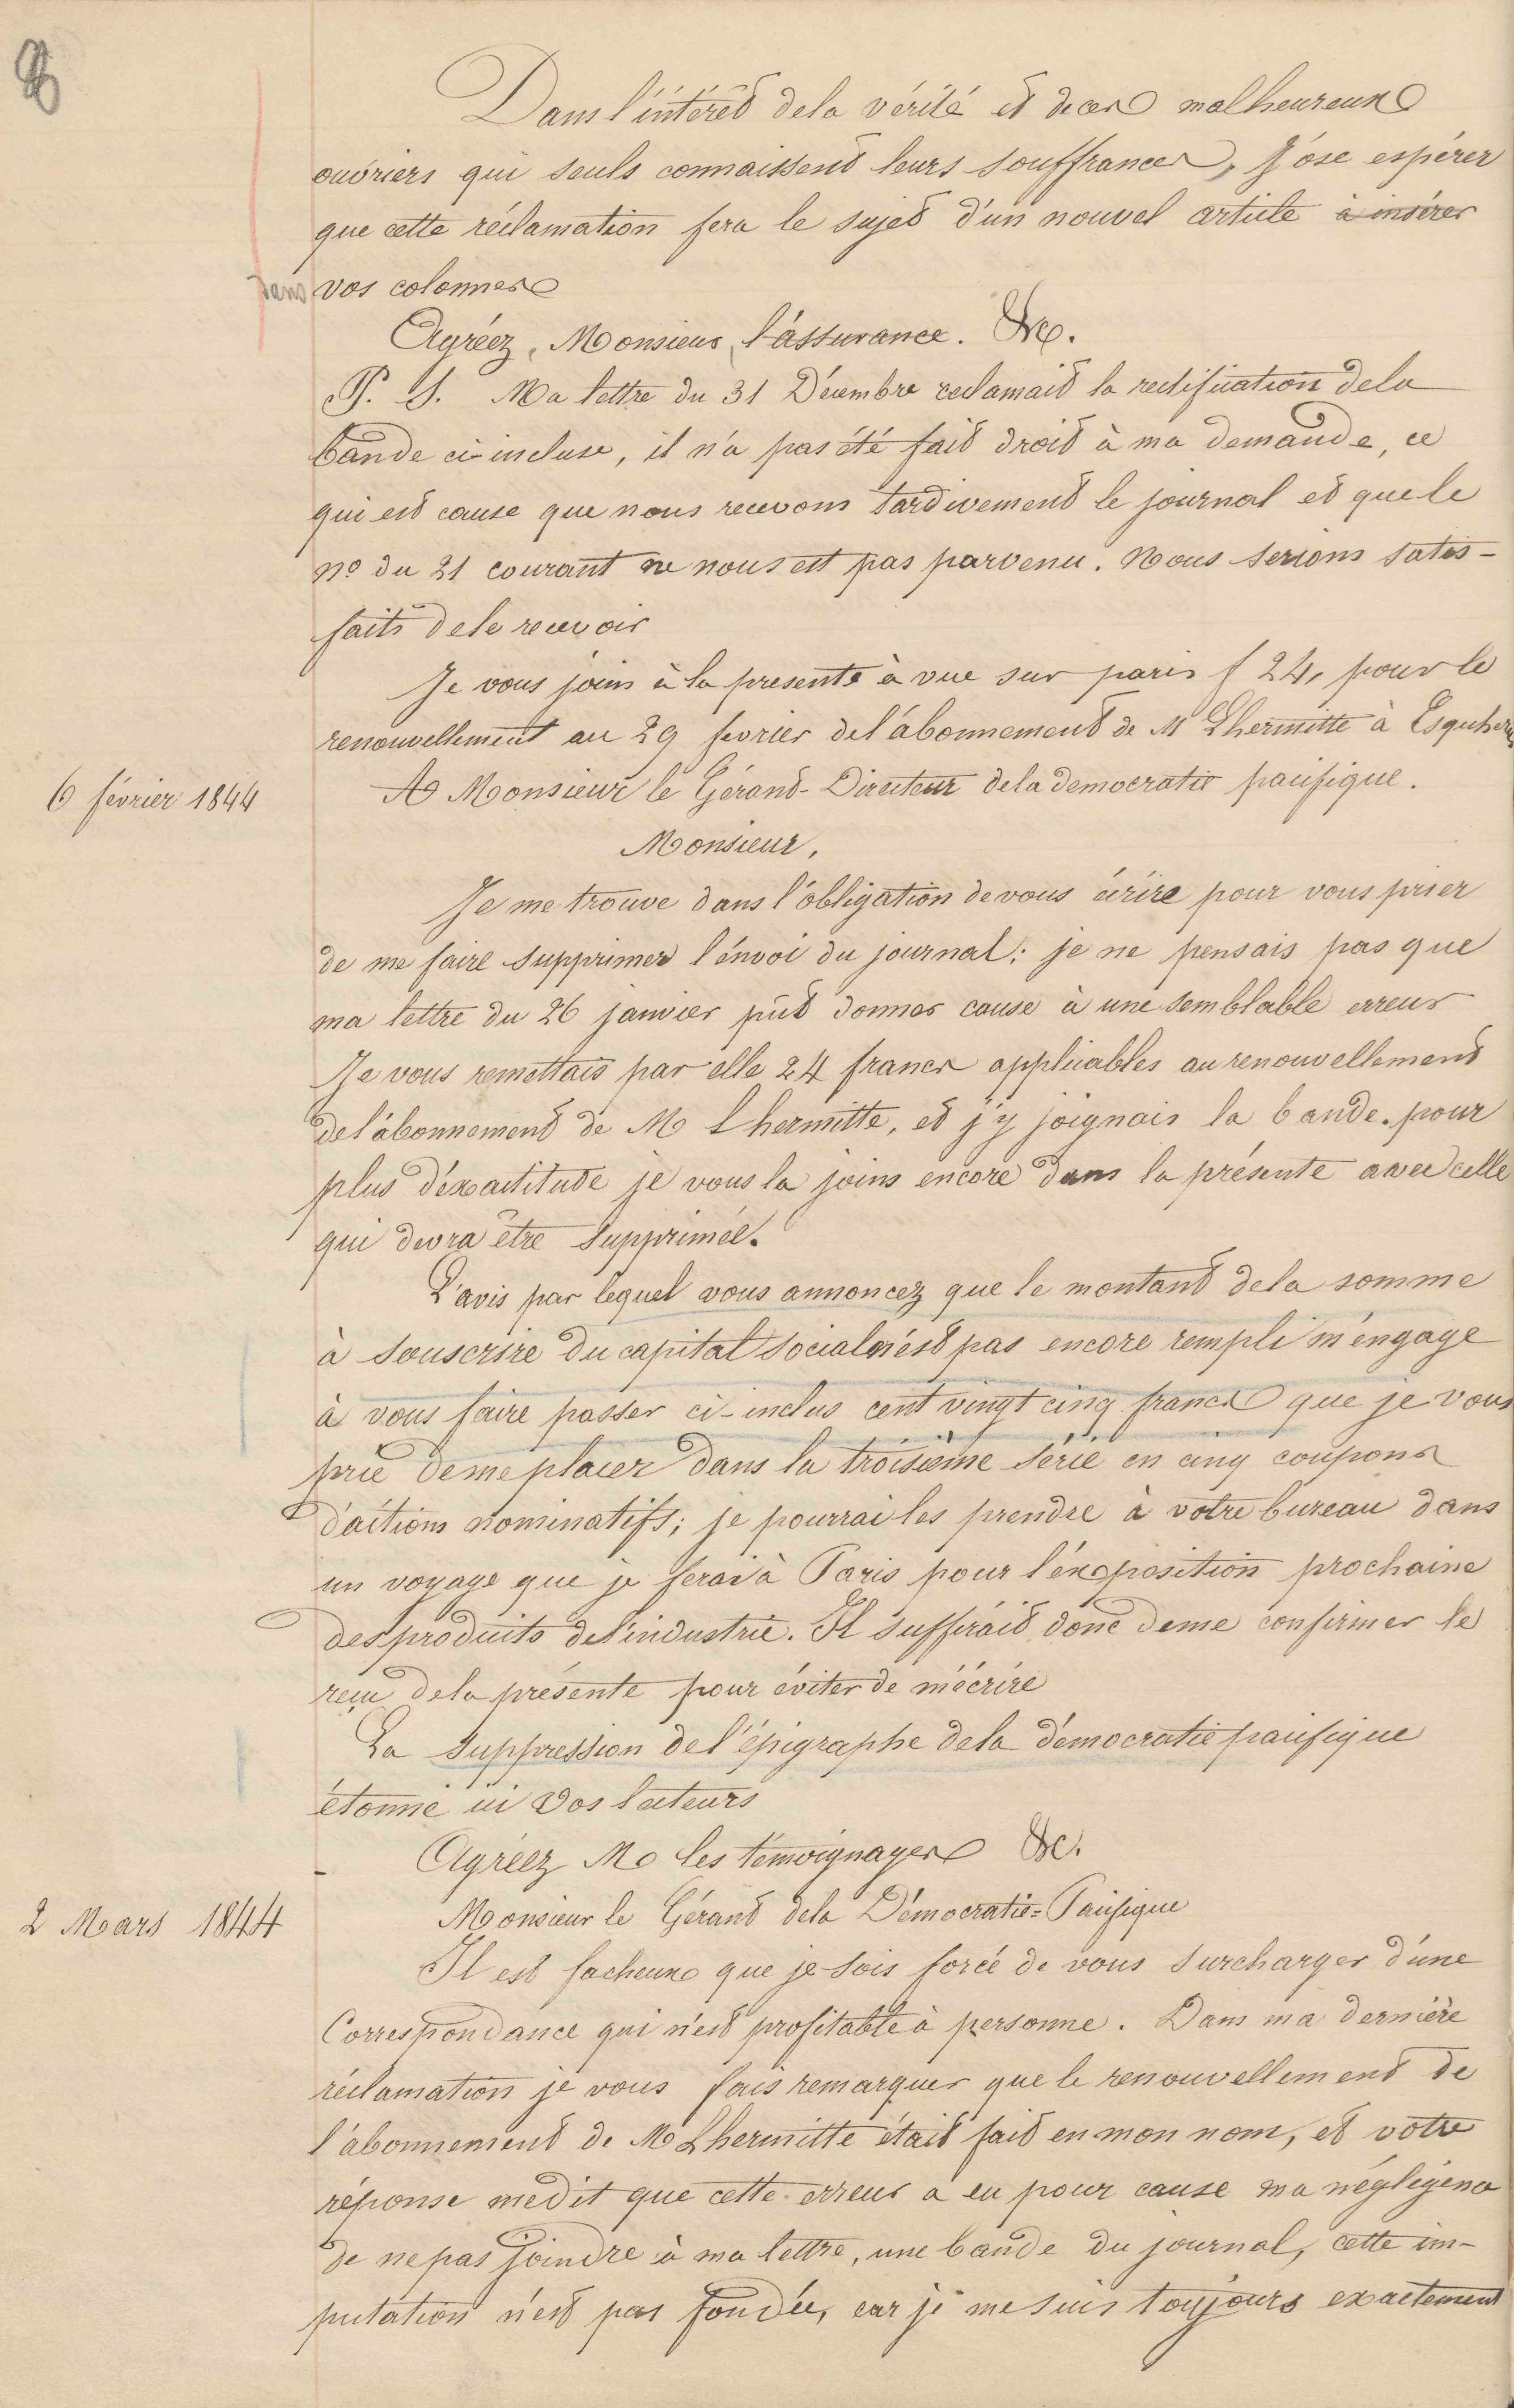 8
Dans l'intérêt de la vérité et de ces malheureux
ouvriers qui seuls connaissent leurs souffrances, j'ose espérer
que cette réclamation fera le sujet d'un nouvel article à insérer
dans vos colonnes
Agréez, Monsieur, l'assurance. &c.
P. S. Ma lettre du 31 Décembre reclamait la rectification de la
bande ci-incluse, il n'a pas été fait droit à ma demande, ce
qui est cause que nous recevons tardivement le journal et que le
no du 21 courant ne nous est pas parvenu. Nous serions satis-
faits de le recevoir
Je vous joins à la presente à vue sur paris f 24, pour le
renouvellement au 29 fevrier de l'abonnement de M Lhermitte à Esqueheries
6 février 1844
A Monsieur le Gérant-Directeur de la democratie pacifique.
Monsieur,
Je me trouve dans l'obligation de vous écrire pour vous prier
de me faire supprimer l'envoi du journal; je ne pensais pas que
ma lettre du 26 janvier pût donner cause à une semblable erreur
Je vous remettais par elle 24 francs applicables au renouvellement
de l'abonnement de M Lhermitte, et j'y joignais la bande. pour
plus d'exactitude je vous la joins encore dans la présente avec celle
qui devra être supprimée.
L'avis par lequel vous annoncez que le montant de la somme
à souscrire du capital social n'est pas encore rempli m'engage
à vous faire passer ci-inclus cent vingt cinq francs que je vous
prie de me placer dans la troisième série en cinq coupons
d'actions nominatifs; je pourrai les prendre à votre bureau dans
un voyage que je ferai à Paris pour l'exposition prochaine
des produits de l'industrie. Il suffirait donc de me confirmer le
reçu de la présente pour éviter de m'écrire
La suppression de l'épigraphe de la démocratie pacifique
étonne ici vos lecteurs
Agréez M les témoignages &c.
2 Mars 1844
Monsieur le Gérant de la Démocratie=Pacifique
Il est facheux que je sois forcé de vous surcharger d'une
Correspondance qui n'est profitable à personne. Dans ma dernière
réclamation je vous fais remarquer que le renouvellement de
l'abonnement de M Lhermitte était fait en mon nom, et votre
réponse me dit que cette erreur a eu pour cause ma négligence
de ne pas joindre à ma lettre, une bande du journal, cette im-
putation n'est pas fondée, car je me suis toujours exactement